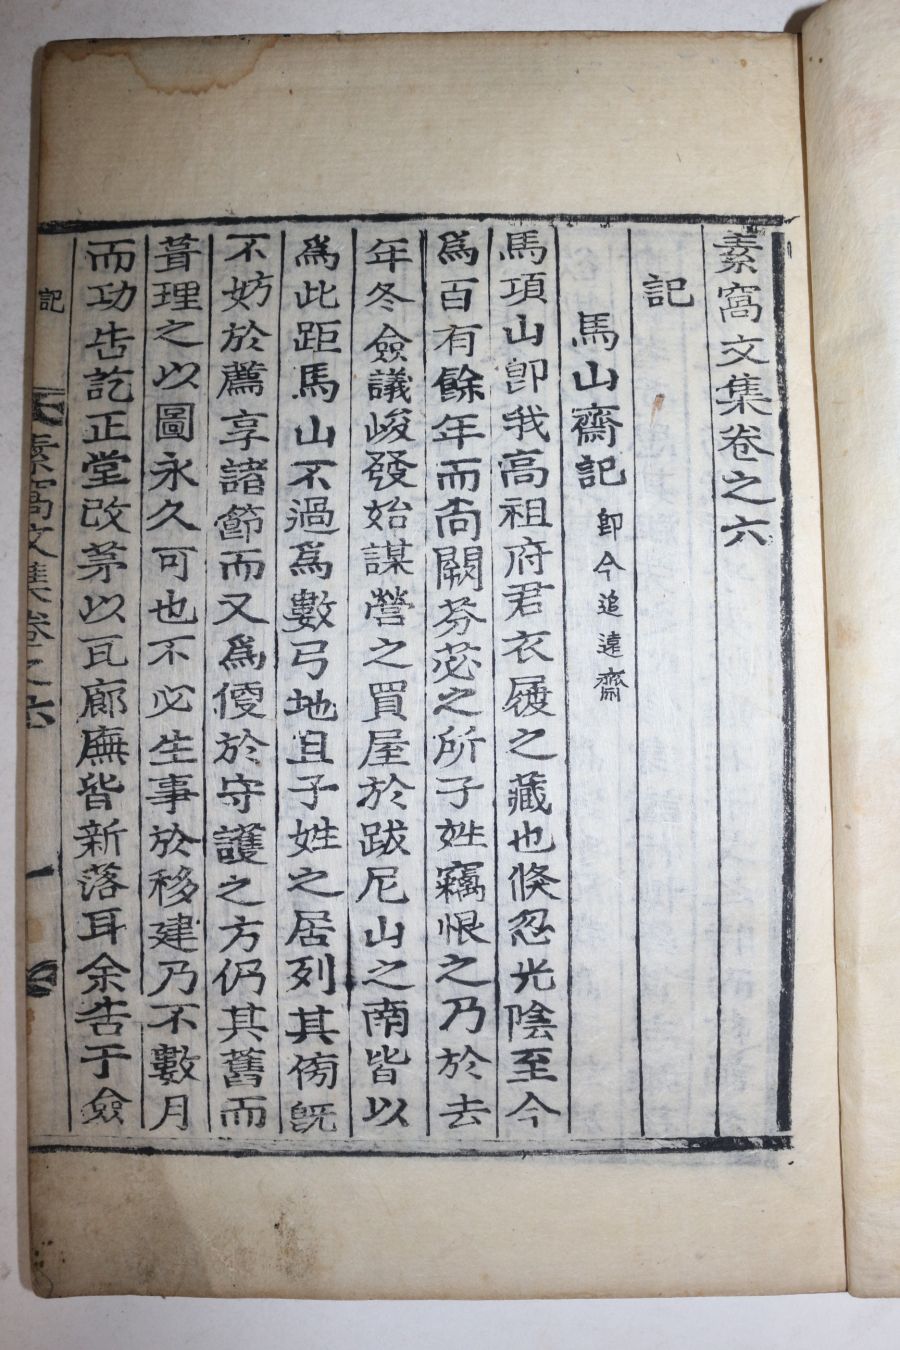 素窩文集卷之六
記
馬山齋記 卽今追遠齋
馬項山卽我高祖府君衣履之藏也倏忽光陰至今
爲百有餘年而尙闕芬苾之所子姓竊恨之乃於去
年冬僉議峻發始謀營之買屋於跋尼山之南皆以
爲此距馬山不過爲數弓地且子姓之居列其傍旣
不妨於薦享諸節而又爲便於守護之方仍其舊而
葺理之以圖永久可也不必生事於移建乃不數月
而功告訖正堂改茅以瓦廊廡皆新落耳余告于僉
記
素窩文集卷之六
一